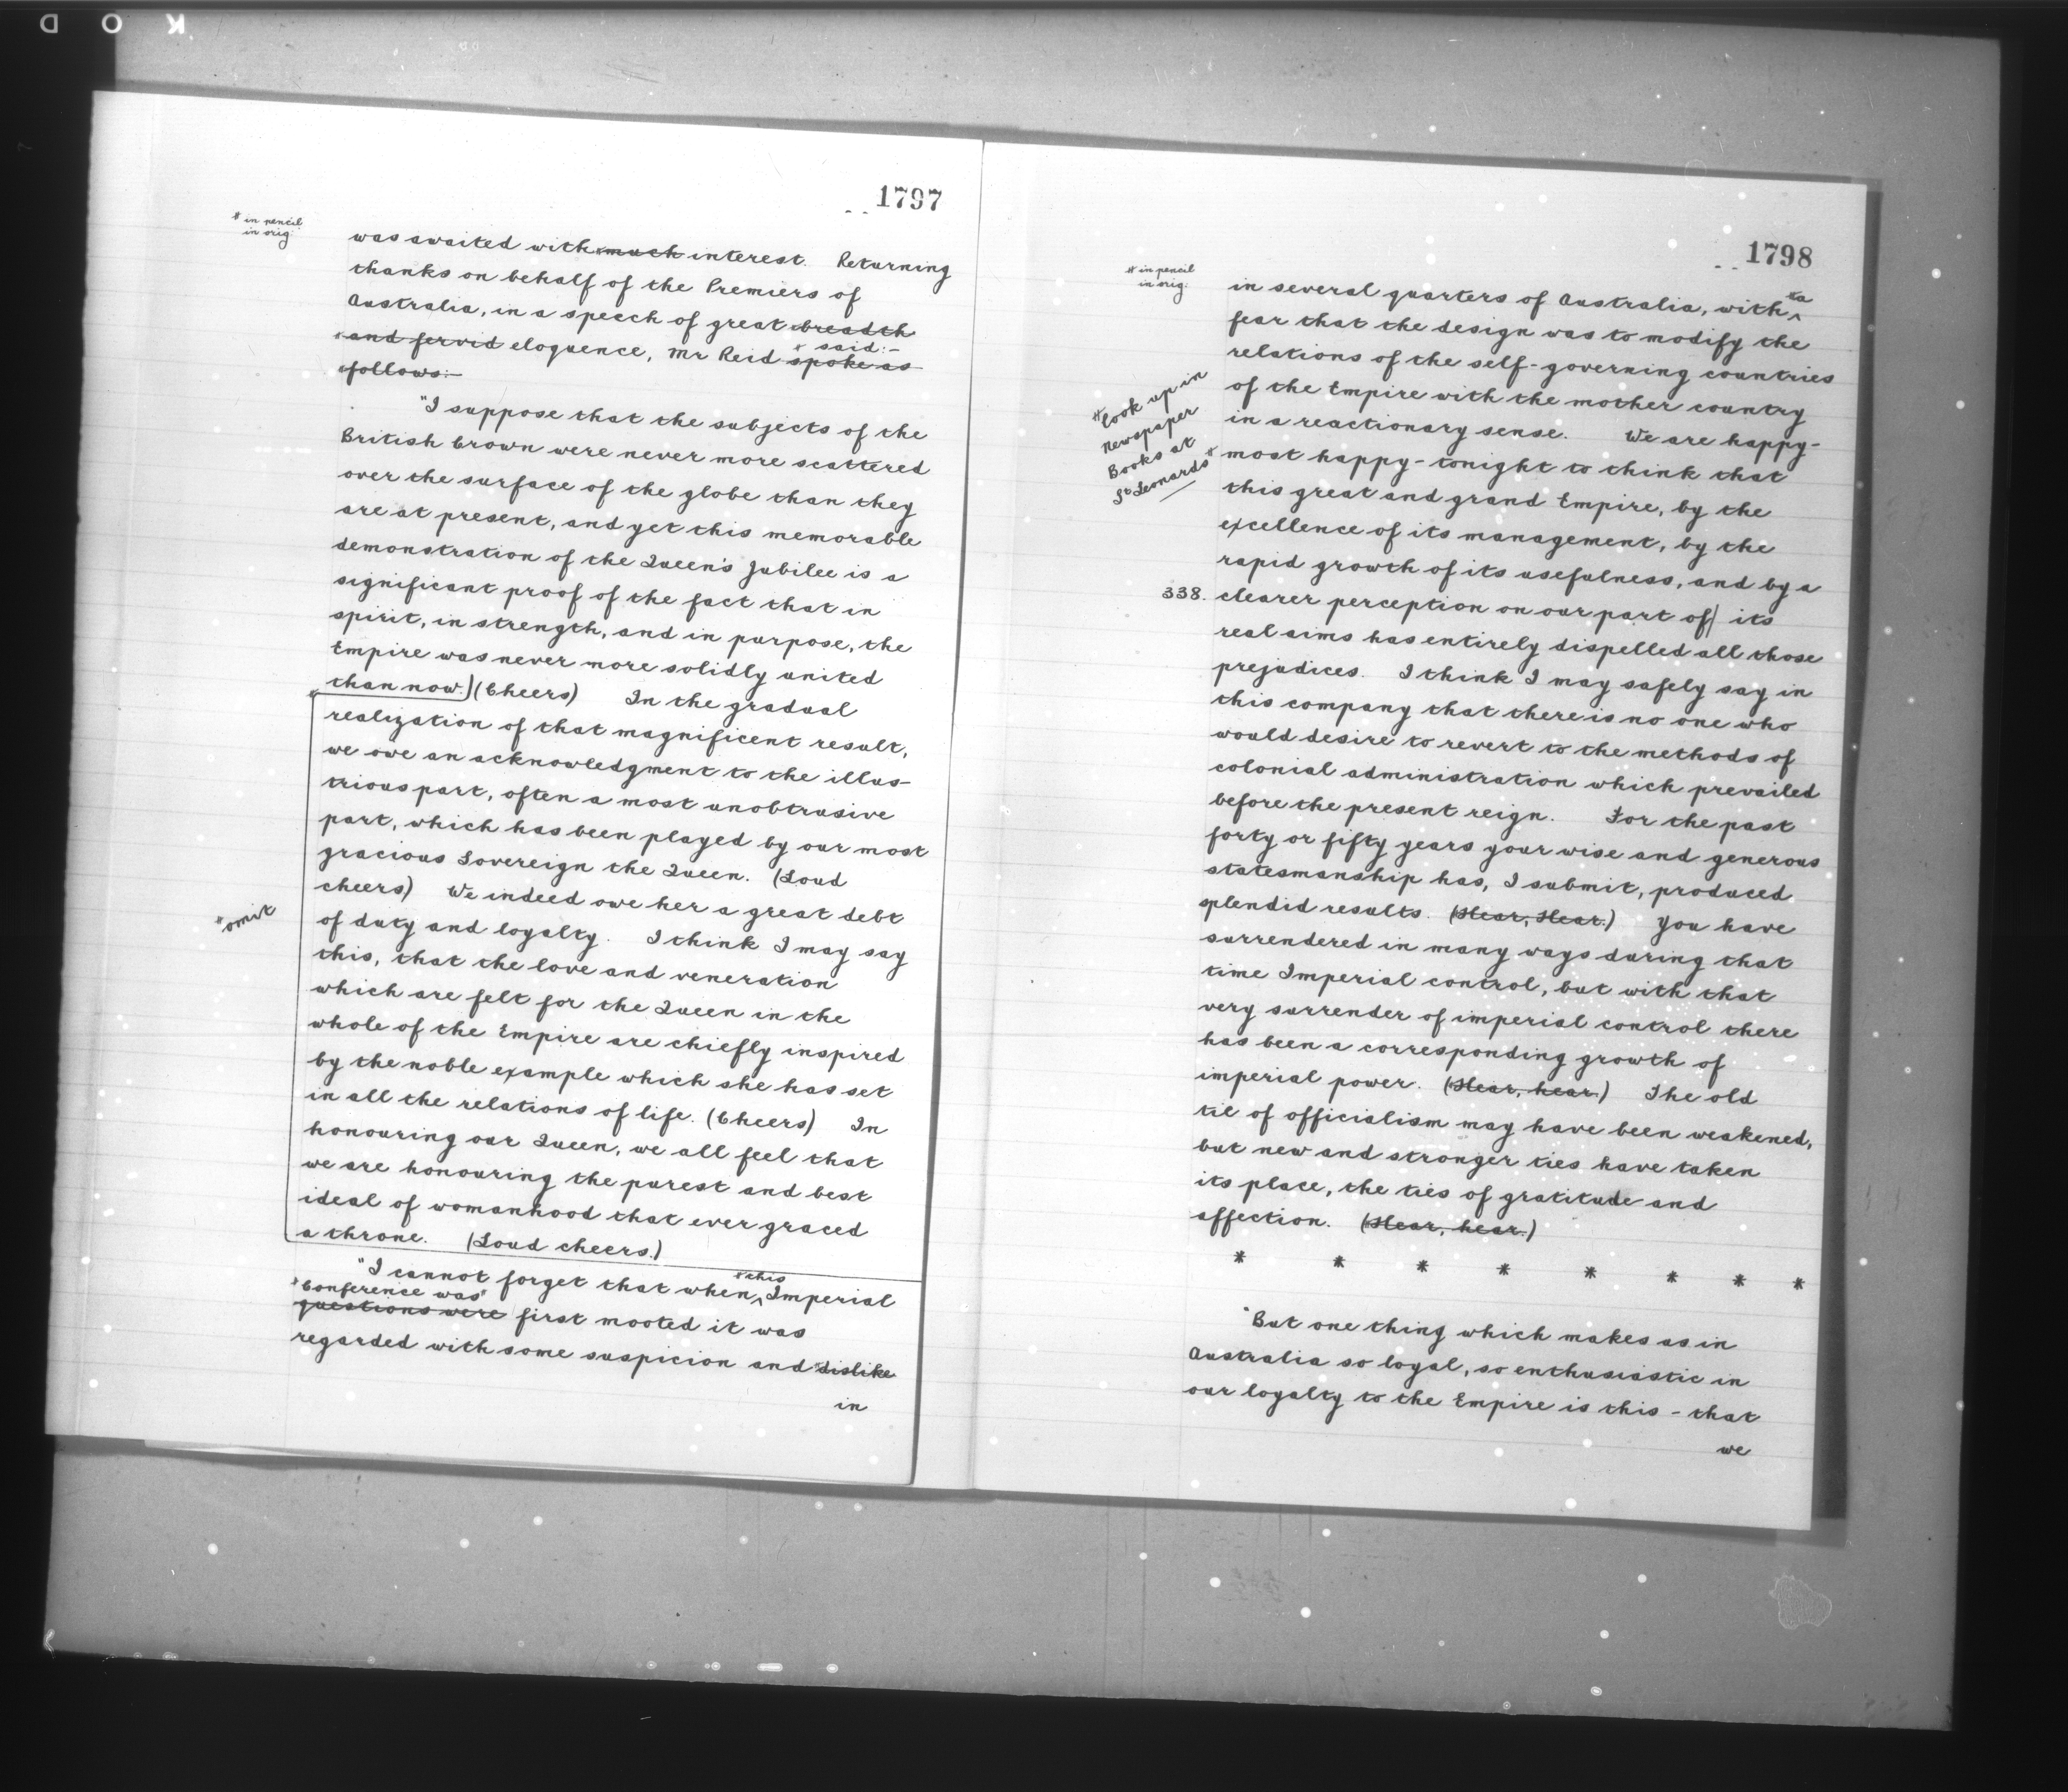 KOD
1797
* in pencil
in orig.
was awaited with *much interest. Returning
thanks on behalf of the Premiers of
Australia, in a speech of great *breadth
*and fervid eloquence, Mr Reid spoke as
* said:-
*follows:-
"I suppose that the subjects of the
British Crown were never more scattered
over the surface of the globe than they
are at present, and yet this memorable
demonstration of the Queen's Jubilee is a
significant proof of the fact that in
spirit, in strength, and in purpose, the
Empire was never more solidly united
than now.] (Cheers) In the gradual
realization of that magnificent result,
we owe an acknowledgment to the illus-
trious part, often a most unobtrusive
part, which has been played by our most
gracious Sovereign the Queen. (Loud
cheers) We indeed owe her a great debt
*omit
of duty and loyalty. I think I may say
this, that the love and veneration
which are felt for the Queen in the
whole of the Empire are chiefly inspired
by the noble example which she has set
in all the relations of life. (Cheers) In
honouring our Queen, we all feel that
we are honouring the purest and best
ideal of womanhood that ever graced
a throne. (Loud cheers.)
"I cannot forget that when ^ Imperial
*this
*Conference was*
questions were first mooted it was
regarded with some suspicion and *dislike
in
1798
* in pencil
in orig.
in several quarters of Australia, with ^
*a
fear that the design was to modify the
relations of the self-governing countries
of the Empire with the mother country
in a reactionary sense. We are happy-
*look up in
newspaper
Books at
St Leonards*
most happy- tonight to think that
this great and grand Empire, by the
excellence of its management, by the
rapid growth of its usefulness, and by a
338. clearer perception on our part of| its
real aims has entirely dispelled all those
prejudices. I think I may safely say in
this company that there is no one who
would desire to revert to the methods of
colonial administration which prevailed
before the present reign. For the past
forty or fifty years your wise and generous
statesmanship has, I submit, produced
splendid results. (Hear, Hear.) You have
surrendered in many ways during that
time Imperial control, but with that
very surrender of imperial control there
has been a corresponding growth of
imperial power. (Hear, hear.) The old
tie of officialism may have been weakened,
but new and stronger ties have taken
its place, the ties of gratitude and
affection. (Hear, hear.)
* * * * * * * *
"But one thing which makes us in
Australia so loyal, so enthusiastic in
our loyalty to the Empire is this - that
we